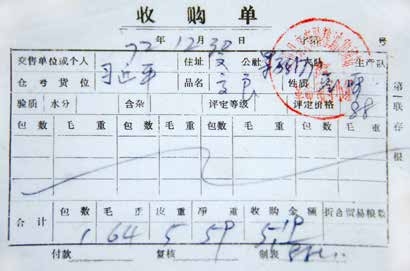 收购单
72年12月30日 字第 号
交售单位或个人 习近平 住址 文 公社 大队 生产队
仓号货位 品名 性质
验质 水分 含杂 评定等级 评定价格 88
包数 毛重 包数 毛重 包数 毛重 包数 毛重 包数 毛重
合计 包数 毛重 皮重 净重 收购金额 折合贸易粮数
1 64 5 59 5.19
付款 复核 制表
第二联存根